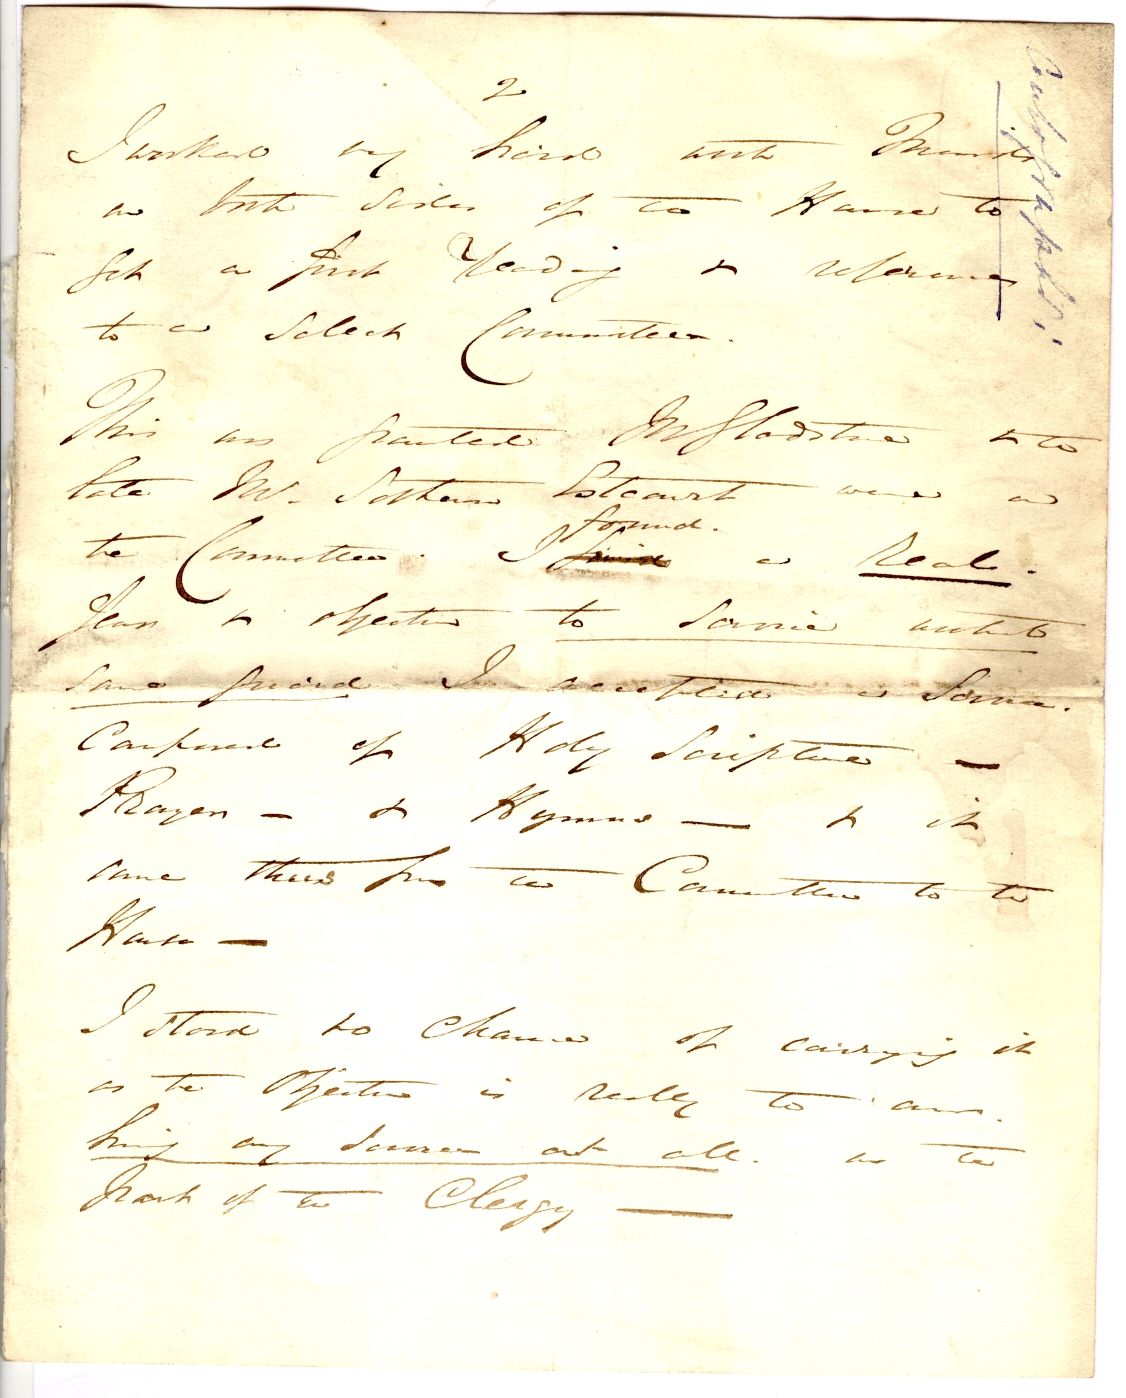 2
I worked very hard with Friends
on both sides of the House to
get a first Reading & reference
to a Select Committee.
This was granted Mr Gladstone & the
late Mr. Sotheron Estcourt were on
the Committee. I found a real.
fear & objection to service without
some guard I a Service.
Composed of Holy Scripture —
Prayer — & Hymns — & it
came thus from the Committee to the
House —
I stood no chance of carrying it
as the Objection is really to any-
thing any Service at all. on the
part of the Clergy —